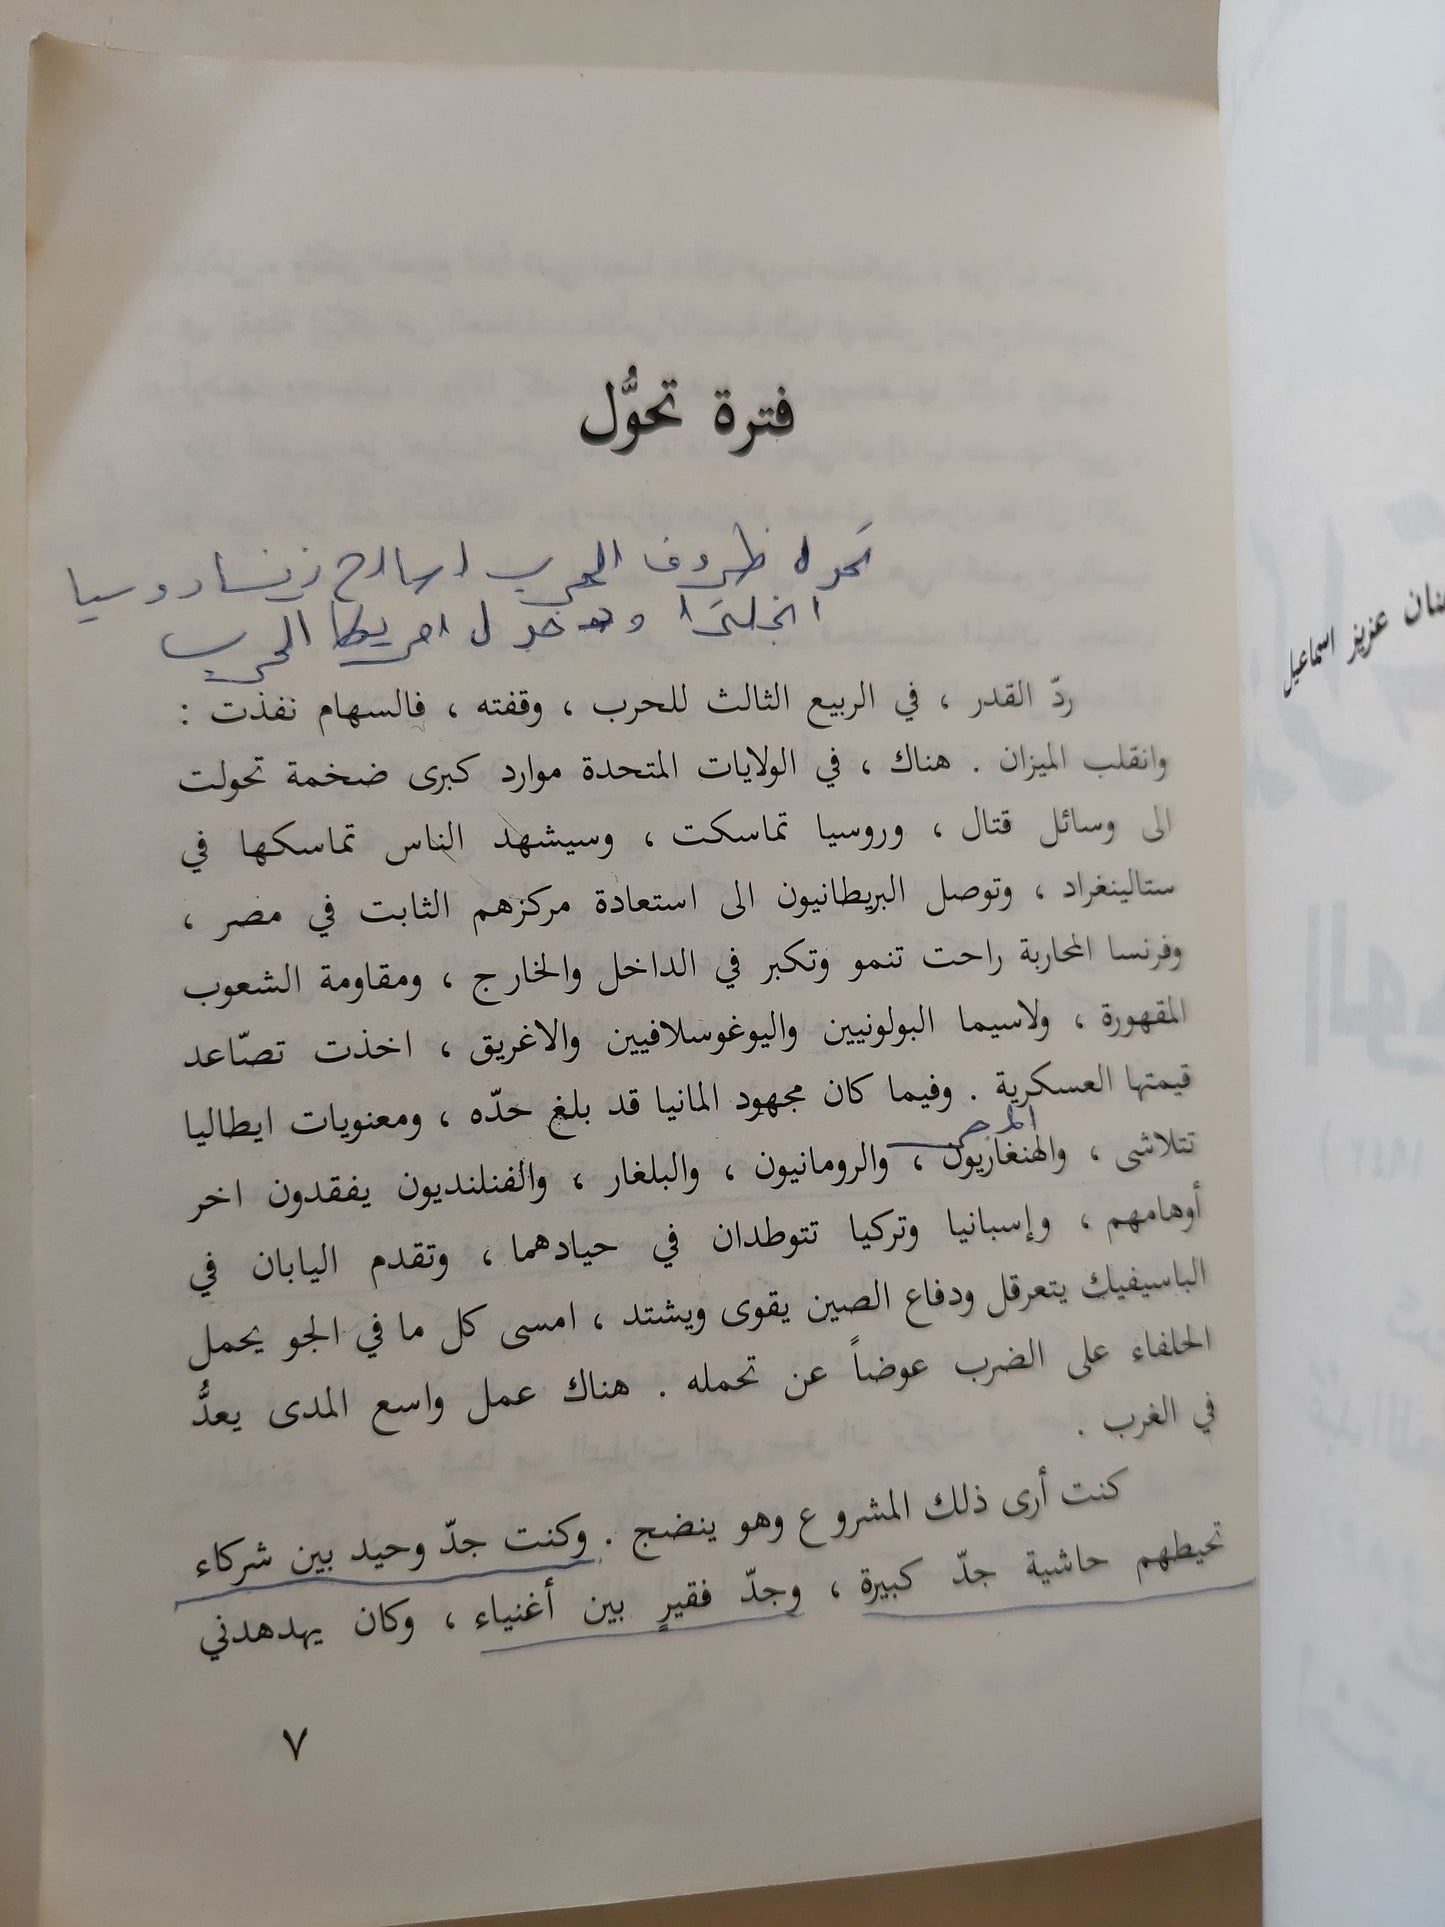 فترة تحوُّل
تحول ظروف الحرب لصالح فرنسا روسيا
انجلترا ودخول امريكا الحرب
ردّ القدر ، في الربيع الثالث للحرب ، وقفته ، فالسهام نفذت :
وانقلب الميزان . هناك ، في الولايات المتحدة موارد كبرى ضخمة تحولت
الى وسائل قتال ، وروسيا تماسكت ، وسيشهد الناس تماسكها في
ستالينغراد ، وتوصل البريطانيون الى استعادة مركزهم الثابت في مصر ،
وفرنسا المحاربة راحت تنمو وتكبر في الداخل والخارج ، ومقاومة الشعوب
المقهورة ، ولاسيما البولونيين واليوغوسلافيين والاغريق ، اخذت تصّاعد
قيمتها العسكرية . وفيما كان مجهود المانيا قد بلغ حدّه ، ومعنويات ايطاليا
المجر
تتلاشى ، والهنغاريون ، والرومانيون ، والبلغار ، والفنلنديون يفقدون اخر
أوهامهم ، وإسبانيا وتركيا تتوطدان في حيادهما ، وتقدم اليابان في
الباسيفيك يتعرقل ودفاع الصين يقوى ويشتد ، امسى كل ما في الجو يحمل
الحلفاء على الضرب عوضاً عن تحمله . هناك عمل واسع المدى يعدُّ
في الغرب .
كنت أرى ذلك المشروع وهو ينضج . وكنت جدّ وحيد بين شركاء
تحيطهم حاشية جدّ كبيرة ، وجدّ فقيرٍ بين أغنياء ، وكان يهدهدني
٧
عنان عزيز اسماعيل